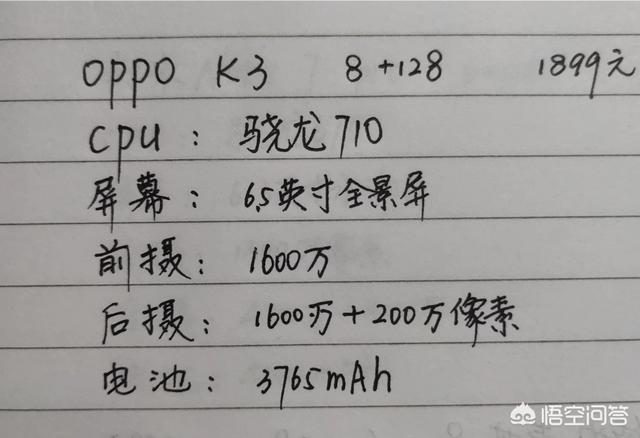 oppo K3 8+128 1899元
cpu：骁龙710
屏幕：6.5英寸全景屏
前摄：1600万
后摄：1600万+200万像素
电池：3765mAh
悟空问答